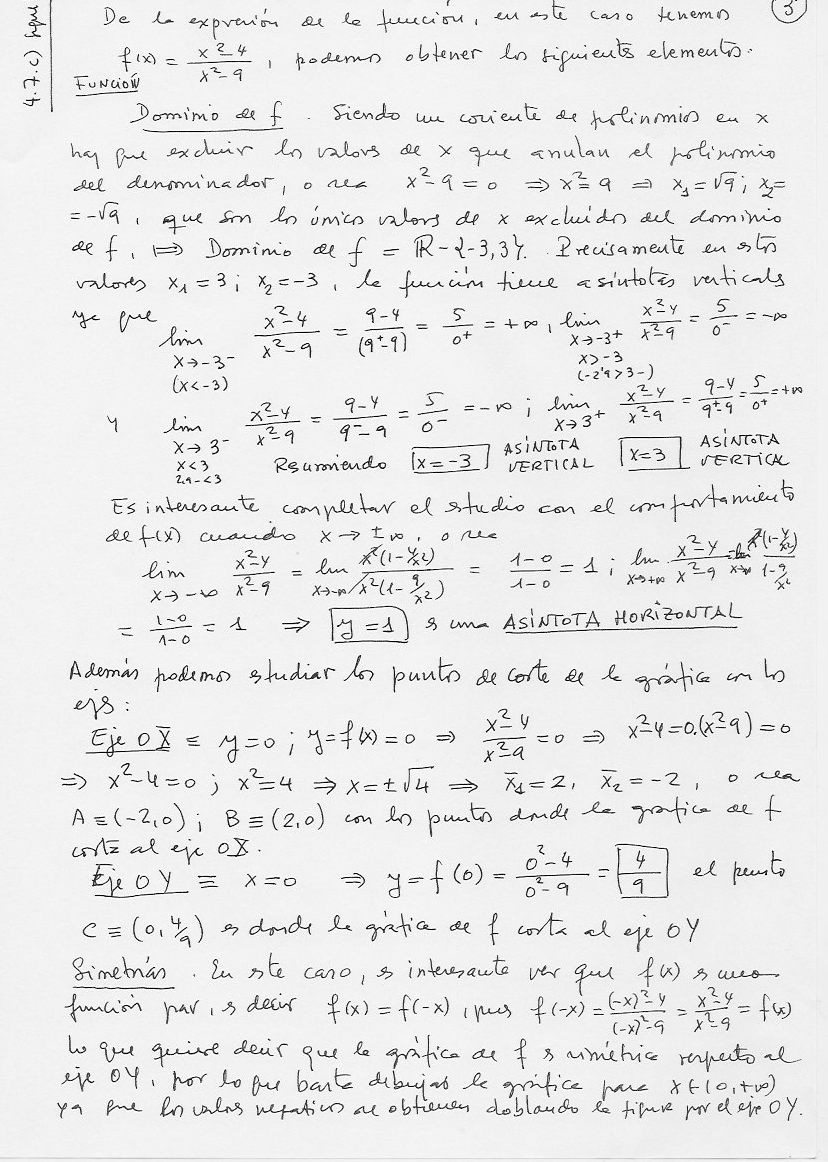 3
4.7.c) sigue
De la expresión de la función, en este caso tenemos
f(x) = x²-4/x²-9, podemos obtener los siguientes elementos.
FUNCIÓN
Dominio de f. Siendo un cociente de polinomios en x
hay que excluir los valores de x que anulan el polinomio
del denominador, o sea x²-9=0 ⇒ x²=9 ⇒ x₁=√9; x₂=
=-√9, que son los únicos valores de x excluidos del dominio
de f, ⇒ Dominio de f = ℝ-{-3,3}. Precisamente en estos
valores x₁=3; x₂=-3, la función tiene asíntotas verticales
ya que lim x²-4/x²-9 = 9-4/(9⁺-9) = 5/0⁺ = +∞, lim x²-4/x²-9 = 5/0⁻ = -∞
x→-3⁻ x→-3⁺
(x<-3) x>-3
(-2'9>3-)
y lim x²-4/x²-9 = 9-4/9⁻-9 = 5/0⁻ = -∞; lim x²-4/x²-9 = 9-4/9⁺-9 = 5/0⁺ = +∞
x→3⁻ x→3⁺
x<3 Resumiendo x=-3 ASÍNTOTA VERTICAL x=3 ASÍNTOTA VERTICAL
2,9-<3
Es interesante completar el estudio con el comportamiento
de f(x) cuando x→±∞, o sea
lim x²-4/x²-9 = lim x²(1-4/x²)/x²(1-9/x²) = 1-0/1-0 = 1; lim x²-4/x²-9 = lim x²(1-4/x²)/1-9/x²
x→-∞ x→-∞ x→+∞ x→∞
= 1-0/1-0 = 1 ⇒ y=1 es una ASÍNTOTA HORIZONTAL
Además podemos estudiar los puntos de corte de la gráfica con los
ejes:
Eje OX ≡ y=0; y=f(x)=0 ⇒ x²-4/x²-9=0 ⇒ x²-4=0.(x²-9)=0
⇒ x²-4=0; x²=4 ⇒ x=±√4 ⇒ x₁=2, x₂=-2, o sea
A≡(-2,0); B≡(2,0) son los puntos donde la grafica de f
corta al eje OX.
Eje OY ≡ x=0 ⇒ y=f(0)=0²-4/0²-9=4/9 el punto
C≡(0,4/9) es donde la gráfica de f corta al eje OY
Simetrías. En este caso, es interesante ver que f(x) es una
función par, es decir f(x)=f(-x), pues f(-x)=(-x)²-4/(-x)²-9=x²-4/x²-9=f(x)
lo que quiere decir que la gráfica de f es simétrica respecto al
eje OY, por lo que basta dibujar la gráfica para x∈(0,+∞)
ya que los valores negativos se obtienen doblando la figura por el eje OY.